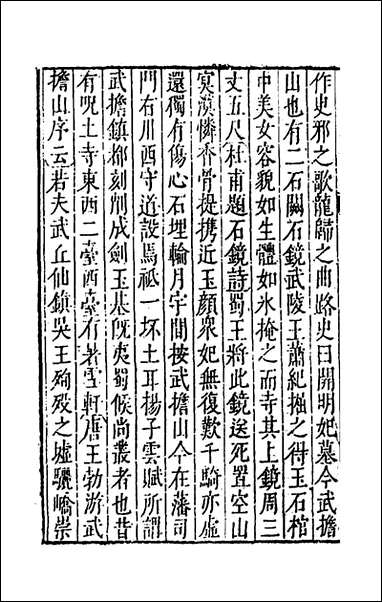 作史邪之歌龍歸之曲路史曰開明妃墓今武擔
山也有二石闕石鏡武陵王蕭紀掘之得玉石棺
中美女容貌如生體如氷掩之而寺其上鏡周三
丈五尺杜甫題石鏡詩蜀王將此鏡送死置空山
㝠漠憐香骨提携近玉顔衆妃無復歎千騎亦虚
還獨有傷心石埋輪月宇間按武擔山今在藩司
門右川西守道設焉祗一坏土耳揚子雲賦所謂
武擔鎮都刻削成劍玉基旣夷蜀候尚叢者也昔
有呪土寺東西二臺西臺有者雪軒唐王勃游武
擔山序云若夫武丘仙鎮吳王殉歿之墟驪嶠崇